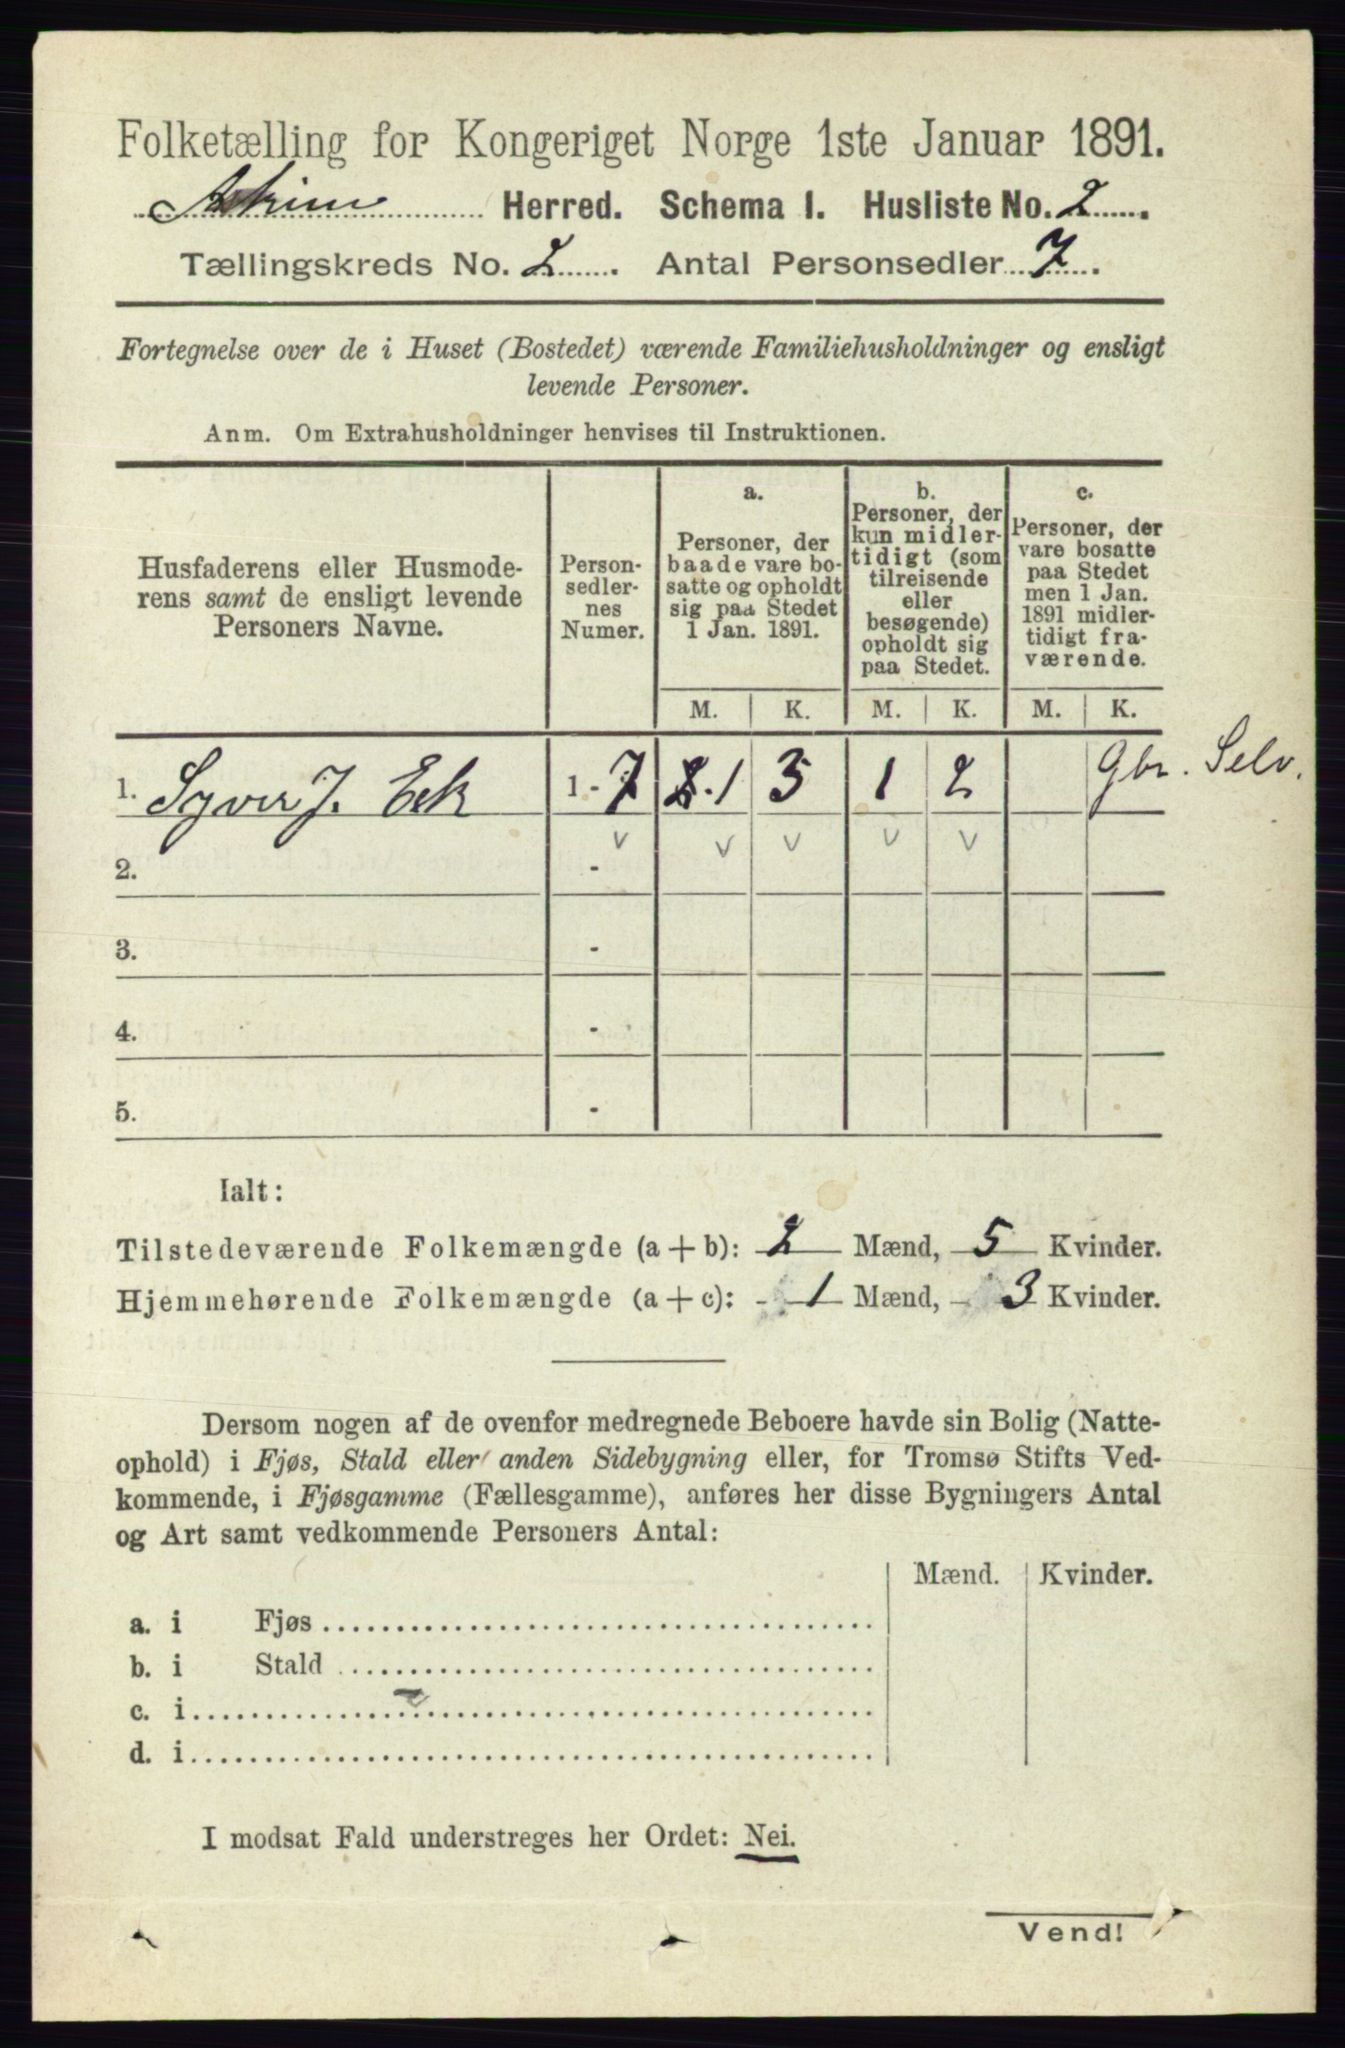 Folketælling for Kongeriget Norge 1ste Januar 1891.
Askim Herred. Schema I. Husliste No. 2
Tællingskreds No. 2. Antal Personsedler 7.
Fortegnelse over de i Huset (Bostedet) værende Familiehusholdninger og ensligt
levende Personer.
Anm. Om Extrahusholdninger henvises til Instruktionen.
Husfaderens eller Husmode-
rens samt de ensligt levende
Personers Navne.
Person-
sedler-
nes
Numer.
a.
Personer, der
baade vare bo-
satte og opholdt
sig paa Stedet
1 Jan. 1891.
b.
Personer, der
kun midler-
tidigt (som
tilreisende
eller
besøgende)
opholdt sig
paa Stedet.
c.
Personer, der
vare bosatte
paa Stedet
men 1 Jan.
1891 midler-
tidigt fra-
værende.
M. K. M. K. M. K.
1. Syver J. Eek 1 - 7 2.1 3 1 2 Gbr. Selv.
v v v v v
2. -
3. -
4. -
5. -
Ialt:
Tilstedeværende Folkemængde (a + b): 2 Mænd, 5 Kvinder.
Hjemmehørende Folkemængde (a + c): 1 Mænd, 3 Kvinder.
Dersom nogen af de ovenfor medregnede Beboere havde sin Bolig (Natte-
ophold) i Fjøs, Stald eller anden Sidebygning eller, for Tromsø Stifts Ved-
kommende, i Fjøsgamme (Fællesgamme), anføres her disse Bygningers Antal
og Art samt vedkommende Personers Antal:
Mænd. Kvinder.
a. i Fjøs
b. i Stald
c. i
d. i
I modsat Fald understreges her Ordet: Nei.
Vend!